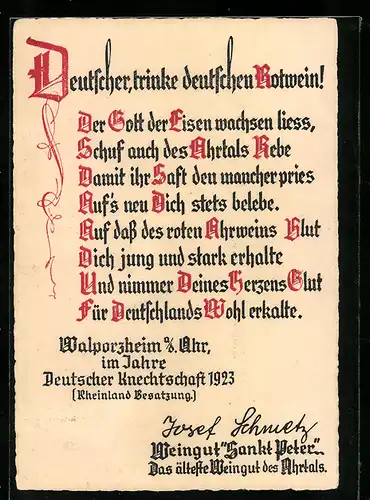 Deutscher, trinke deutschen Rotwein!
Der Gott der Eisen wachsen liess,
Schuf auch des Ahrtals Rebe
Damit ihr Saft den mancher pries
Auf's neu Dich stets belebe.
Auf daß des roten Ahrweins Blut
Dich jung und stark erhalte
Und nimmer Deines Herzens Glut
Für Deutschlands Wohl erkalte.
Walporzheim a/d. Ahr,
im Jahre
Deutscher Knechtschaft 1923
(Rheinland Besatzung.)
Josef Schmetz
Weingut "Sankt Peter".
Das älteste Weingut des Ahrtals.